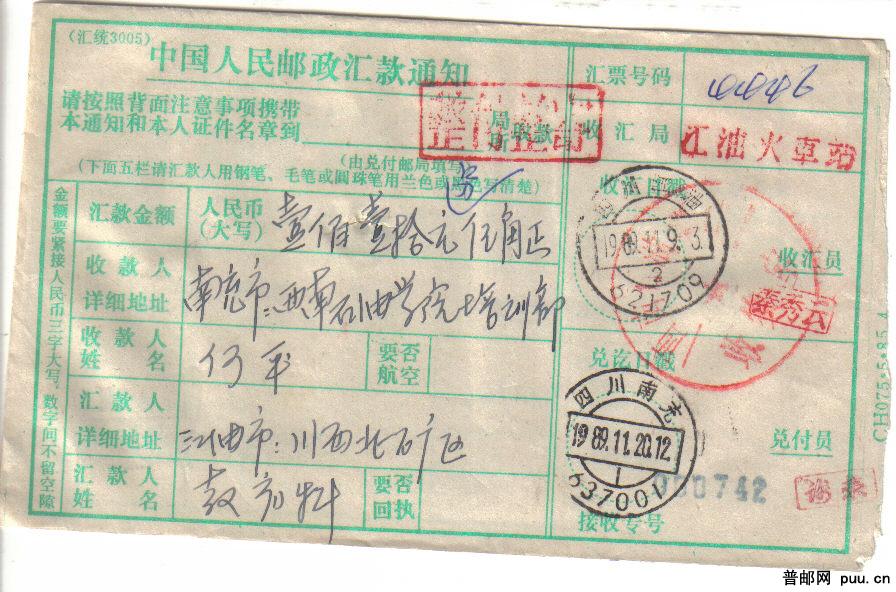 (汇统3005)
中国人民邮政汇款通知
请按照背面注意事项携带
本通知和本人证件名章到
局
所
收款
(由兑付邮局填写)
(下面五栏请汇款人用钢笔、毛笔或圆珠笔用兰色或黑色写清楚)
金额要紧接人民币三字大写。数字间不留空隙
汇款金额
人民币
(大写)
壹佰壹拾元伍角正
收款人
详细地址
南充市:西南石油学院培训部
收款人
姓名
何平
要否
航空
汇款人
详细地址
江油市:川西北矿区
汇款人
姓名
要否
回执
汇票号码
收汇局
江油火车站
收汇日戳
1989.11.9.3
2
621709
收汇员
秦秀云
兑讫日戳
四川南充
1989.11.20.12
1
637001
兑付员
000742
接收专号
CH075·5·85.4
普邮网 puu.cn